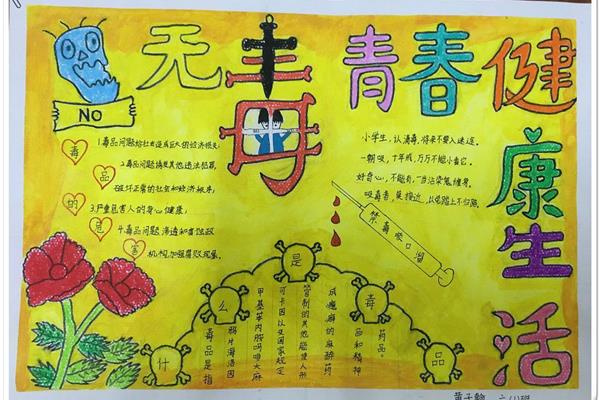 无毒青春健康生活
NO
毒品的危害
1.毒品问题给社会造成巨大的经济损失;
2.毒品问题诱发其他违法犯罪,
破坏正常的社会和经济秩序;
3.严重危害人的身心健康;
4.毒品问题渗透和腐蚀政
机构,加强腐败现象。
小学生,认清毒,将来不要入迷途。
一朝吸,十年戒,万万不能小看它。
好奇心,不能有,一当沾染鬼缠身。
吸毒者,莫接近,从电踏上不归路。
禁毒顺口溜
什么是毒品
毒品是指
鸦片海洛因
甲基苯丙胺吗啡大麻
可卡因以及国家规定
管制的其他能使人形
成瘾癖的麻醉药
品和精神
药品。
黄子翰 六(1)班